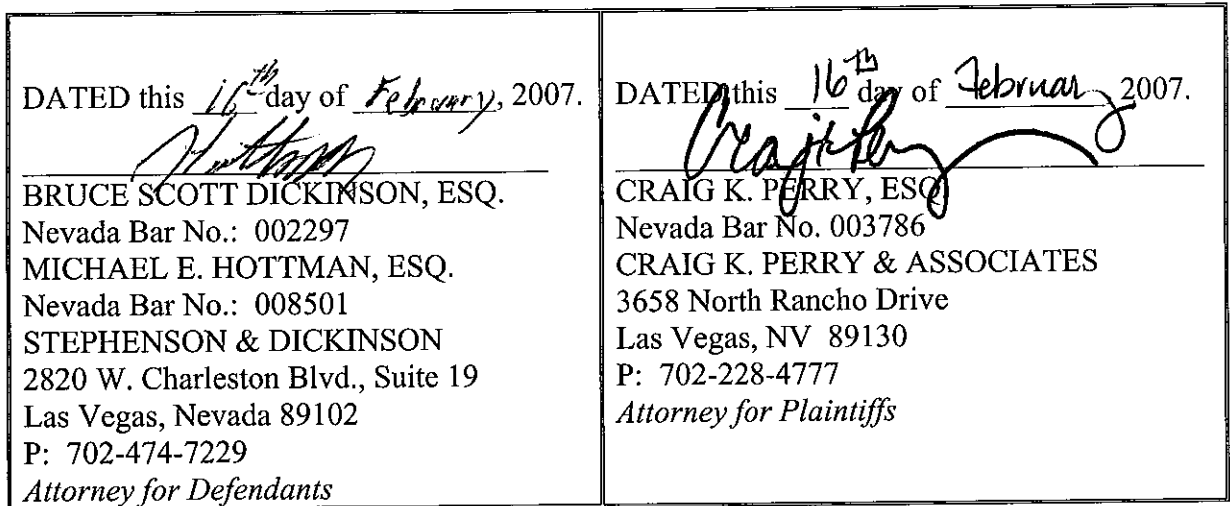 DATED this 16th day of February, 2007.
BRUCE SCOTT DICKINSON, ESQ.
Nevada Bar No.: 002297
MICHAEL E. HOTTMAN, ESQ.
Nevada Bar No.: 008501
STEPHENSON & DICKINSON
2820 W. Charleston Blvd., Suite 19
Las Vegas, Nevada 89102
P: 702-474-7229
Attorney for Defendants
DATED this 16th day of February 2007.
Craig K Perry
CRAIG K. PERRY, ESQ
Nevada Bar No. 003786
CRAIG K. PERRY & ASSOCIATES
3658 North Rancho Drive
Las Vegas, NV 89130
P: 702-228-4777
Attorney for Plaintiffs